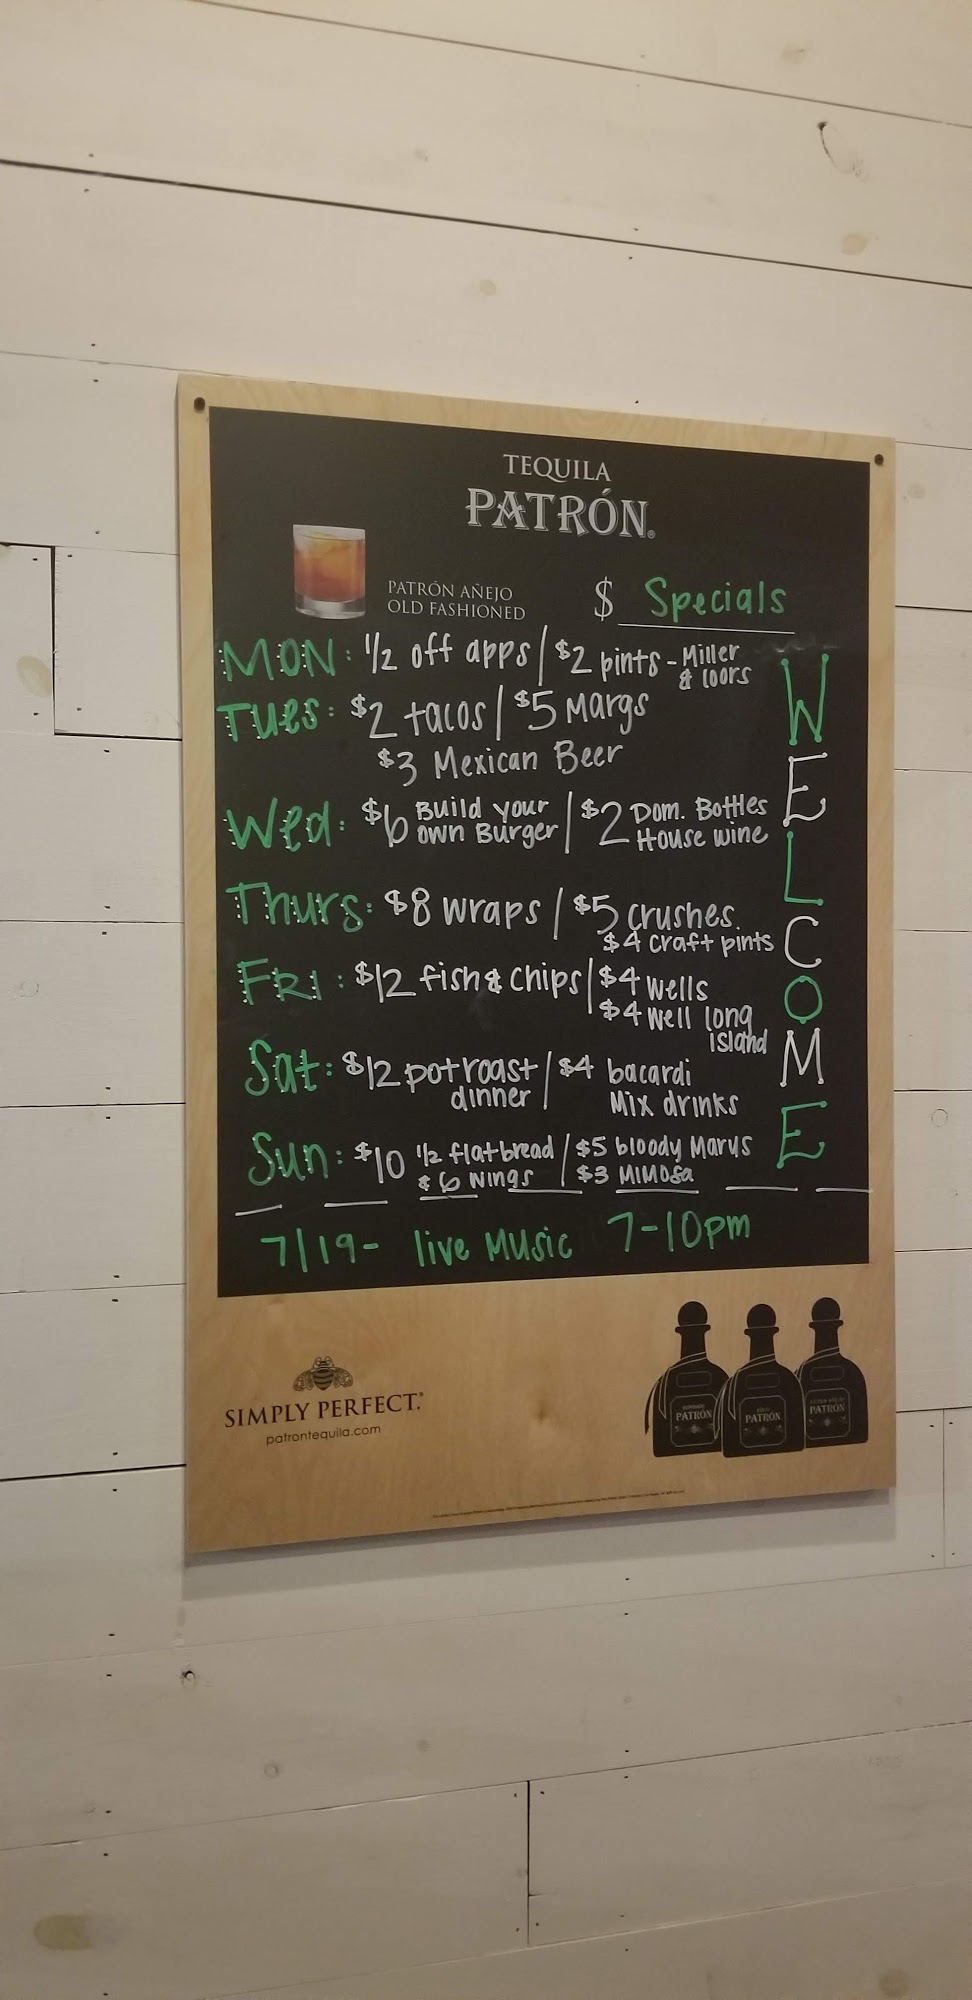 TEQUILA
PATRÓN®
PATRÓN AÑEJO
OLD FASHIONED
$ Specials
MON: 1/2 off apps / $2 pints - Miller
& Coors
Tues: $2 tacos / $5 Margs
$3 Mexican Beer
Wed: $6 Build your own Burger / $2 Dom. Bottles
House wine
Thurs: $8 wraps / $5 crushes
$4 craft pints
FRI: $12 fish & chips / $4 wells
$4 well long
island
Sat: $12 pot roast / $4 bacardi
dinner Mix drinks
Sun: $10 1/2 flatbread / $5 bloody Marys
& 6 wings $3 MIMOSA
WELCOME
7/19 - live Music 7-10pm
SIMPLY PERFECT.®
patrontequila.com
PATRÓN
AÑEJO
PATRÓN
PATRÓN